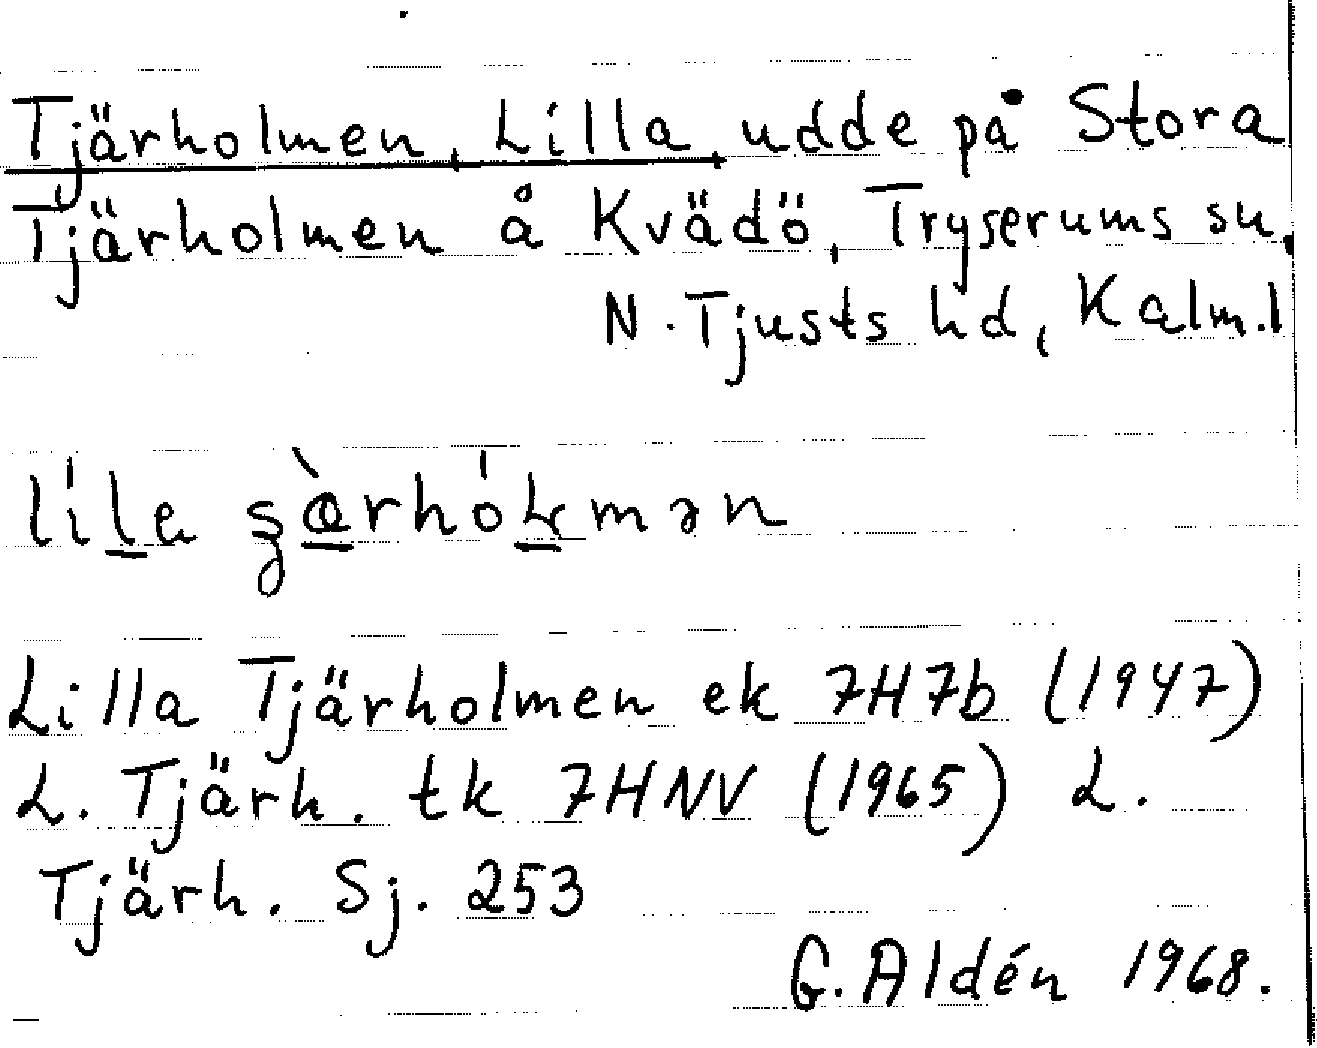 Tjärholmen, Lilla, udde på Stora
Tjärholmen å Kvädö, Tryserums sn,
N. Tjusts hd, Kalm.l
Lilla Tjärholmen ek 7H7b (1947)
L. Tjärh. tk 7HNV (1965) L.
Tjärh. Sj. 253
G. Aldén 1968.